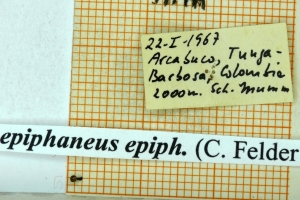 22-I-1967
Arcabuco, Tunga-
Barbosa, Colombia
2000m. Sch. Mumm
epiphaneus epiph. (C. Felder